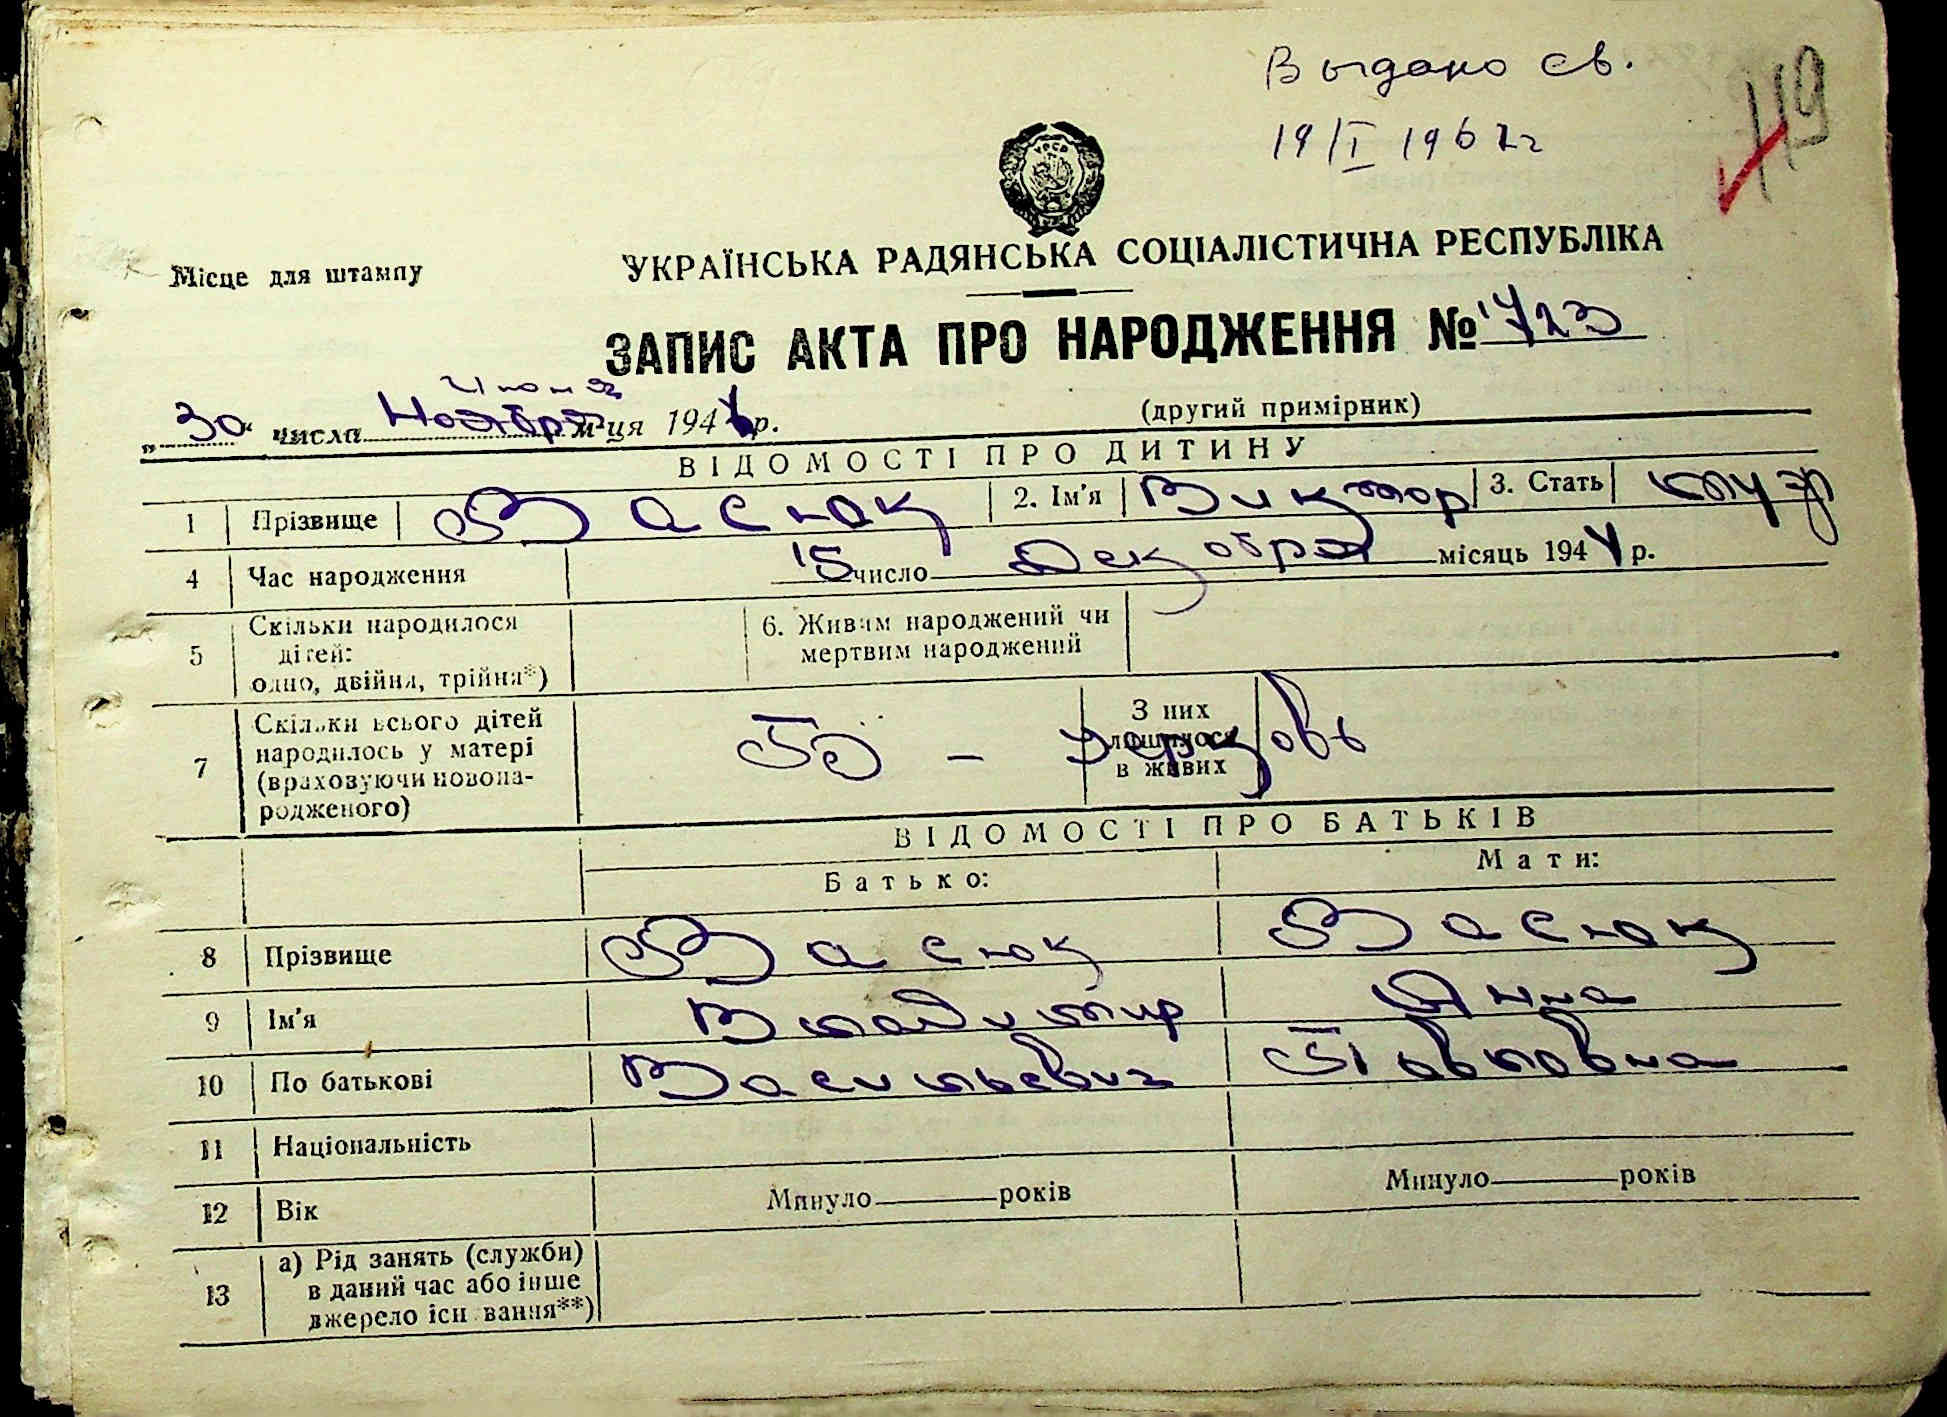 Выдано св.
19/I 1967 г
119
УРСР
Місце для штампу
УКРАЇНСЬКА РАДЯНСЬКА СОЦІАЛІСТИЧНА РЕСПУБЛІКА
ЗАПИС АКТА ПРО НАРОДЖЕННЯ № 723
Июня
„30“ числа Ноября м-ця 194 р.
(другий примірник)
ВІДОМОСТІ ПРО ДИТИНУ
1 Прізвище Васюк 2. Ім'я Виктор 3. Стать муж
4 Час народження 15 число Декабря місяць 1944 р.
5 Скільки народилося дітей: одно, двійня, трійня*) 6. Живим народжений чи мертвим народжений
7 Скільки всього дітей народилось у матері (враховуючи новонародженого) З них лишилося в живих
ВІДОМОСТІ ПРО БАТЬКІВ
Батько: Мати:
8 Прізвище Васюк Васюк
9 Ім'я Владимир Анна
10 По батькові Васильевич Павловна
11 Національність
12 Вік Минуло — років Минуло — років
13 а) Рід занять (служби) в даний час або інше джерело існування**)